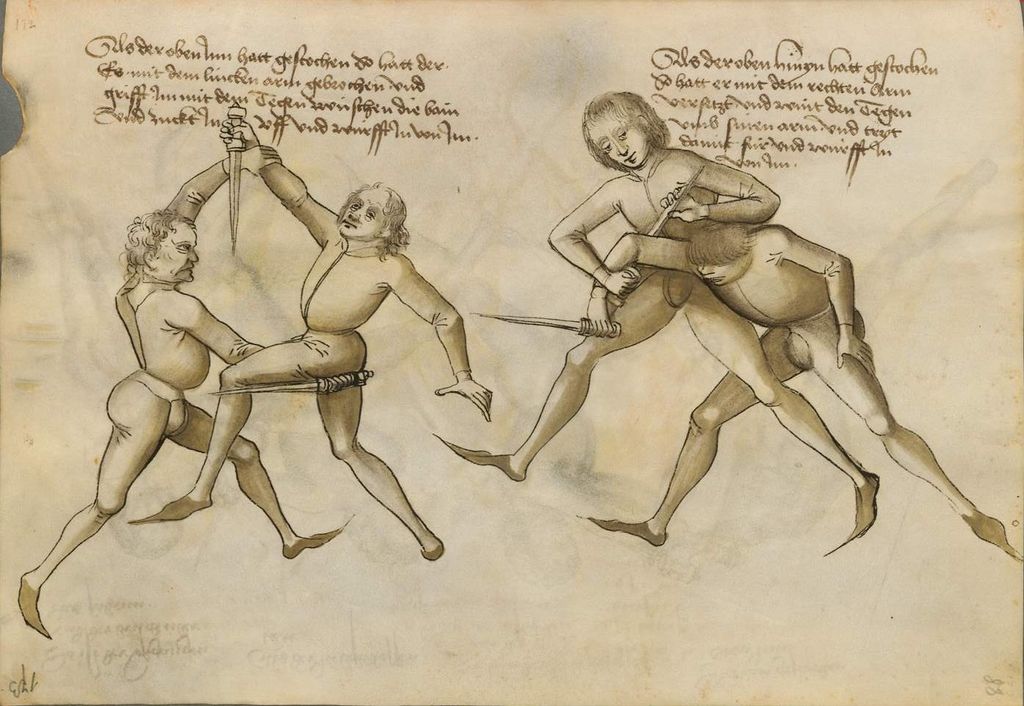 Als der oben Inn hatt gestochen So hatt der
Es mit dem lincken arm gebrochen vnd
grifft Im mit dem Tegen zwüschen die bain
Vnd zuckt In vff vnd würfft In von Im.
Als der oben hinyn hatt gestochen
So hatt er mit dem rechten Arm
versetzt vnd wint den Tegen
vmb sinen arm vnd tryt
damit für vnd würfft In
von Im.